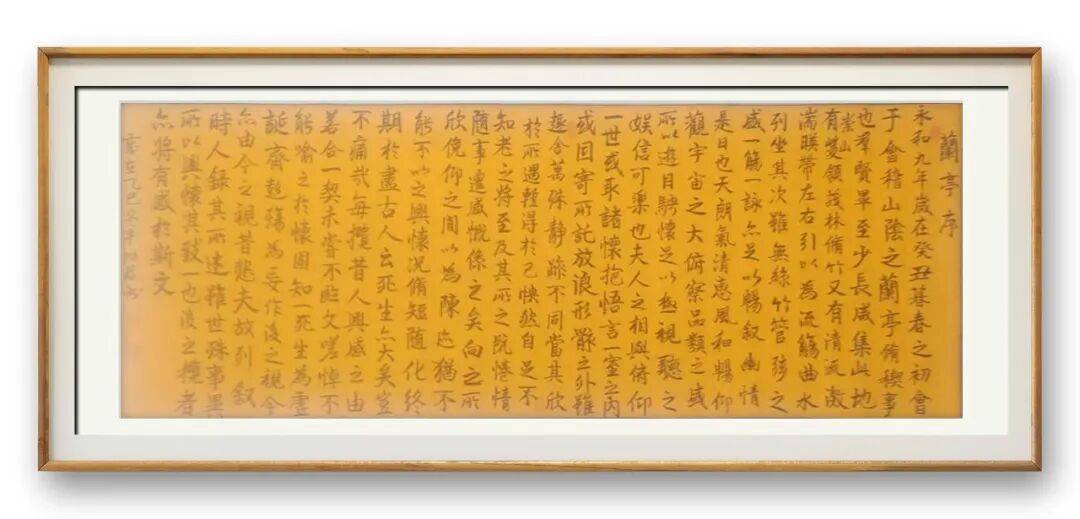 蘭亭序
永和九年歲在癸丑暮春之初會
于會稽山陰之蘭亭脩稧事
也羣賢畢至少長咸集此地
有崇山峻領茂林脩竹又有清流激
湍暎帶左右引以為流觴曲水
列坐其次雖無絲竹管弦之
盛一觴一詠亦足以暢敘幽情
是日也天朗氣清惠風和暢仰
觀宇宙之大俯察品類之盛
所以遊目騁懷足以極視聽之
娛信可樂也夫人之相與俯仰
一世或取諸懷抱悟言一室之內
或因寄所託放浪形骸之外雖
趣舍萬殊靜躁不同當其欣
於所遇蹔得於己怏然自足不
知老之將至及其所之既惓情
隨事遷感慨係之矣向之所
欣俛仰之間以為陳迹猶不
能不以之興懷況脩短隨化終
期於盡古人云死生亦大矣豈
不痛哉每攬昔人興感之由
若合一契未嘗不臨文嗟悼不
能喻之於懷固知一死生為虛
誕齊彭殤為妄作後之視今
亦由今之視昔悲夫故列敘
時人錄其所述雖世殊事異
所以興懷其致一也後之攬者
亦將有感於斯文
歲在乙巳冬